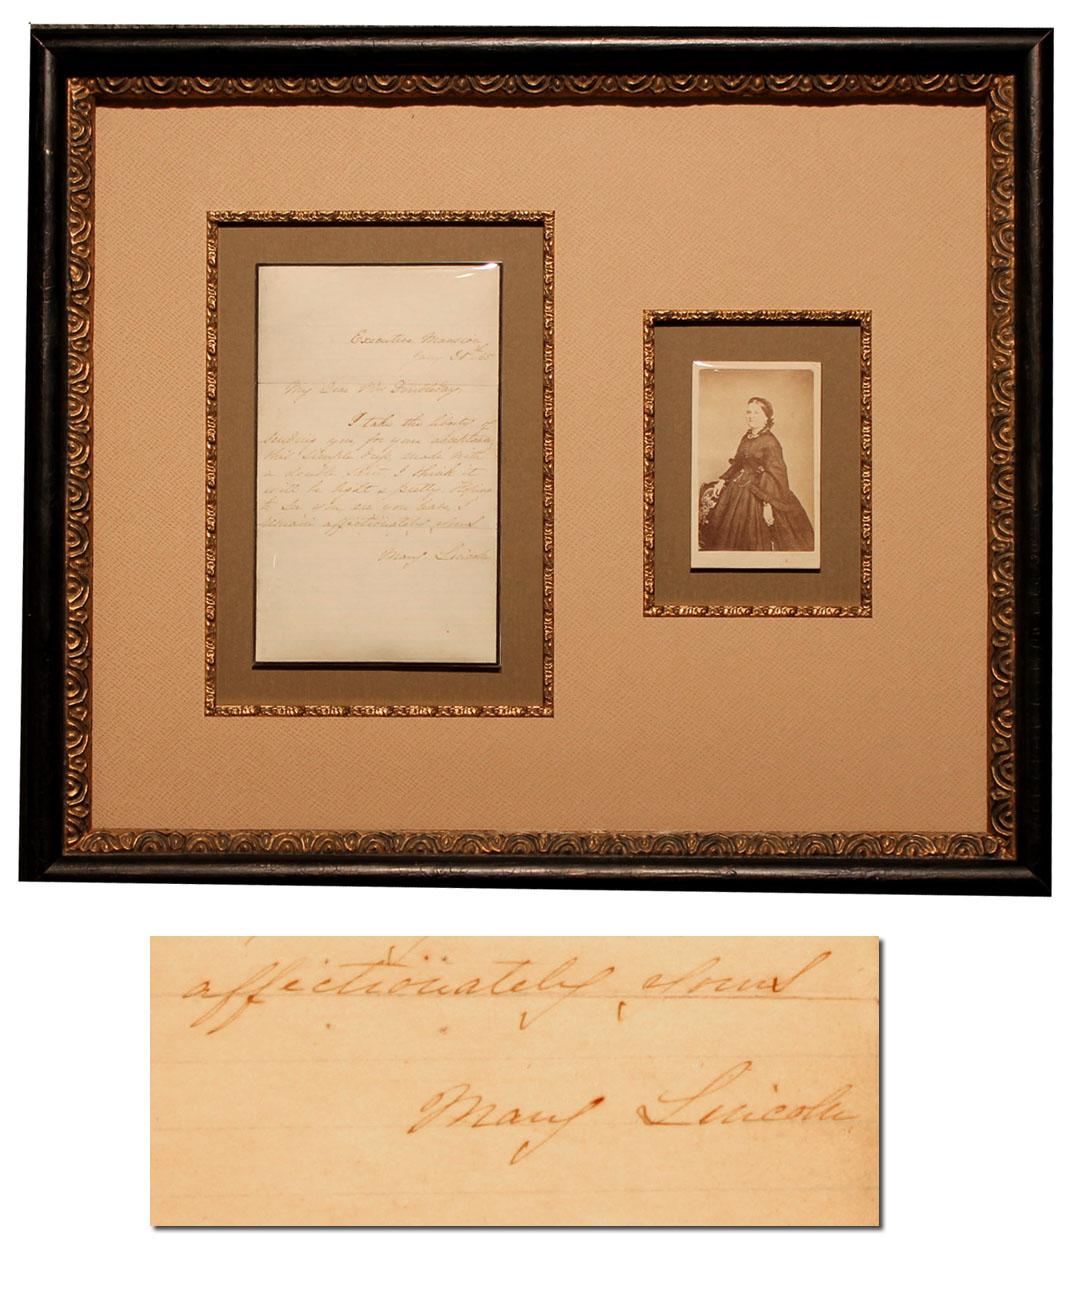 Executive Mansion
30th 65
My Dear Mrs
I take the liberty of
sending you, for your acceptance
this simple cap made with
a I think it
will be light & pretty. Hoping
to see you I
remain affectionately yours
Mary Lincoln
affectionately yours
Mary Lincoln